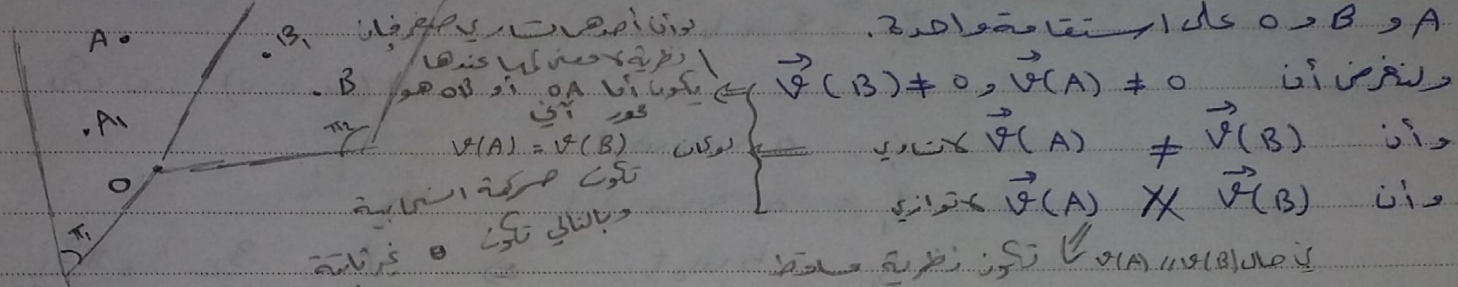 A و B و O على استقامة واحدة.
ولنفرض أن $\vec{v}(B) \neq 0$ و $\vec{v}(A) \neq 0$
وأن $\vec{v}(A) \neq \vec{v}(B)$ لا تساوي
وأن $\vec{v}(A)$ ∦ $\vec{v}(B)$ لا توازي
في حال v(A) // v(B) تكون نظرية مساقط
لو أن أحدهما تساوي صفر فإن
نظرية لا معنى لها عندها
يكون أما OA أو OB هو
محور آني
لو كان v(A) = v(B)
تكون حركة انسحابية
وبالتالي تكون θ غير ثابتة
A
B₁
B
A₁
π₂
O
π₁